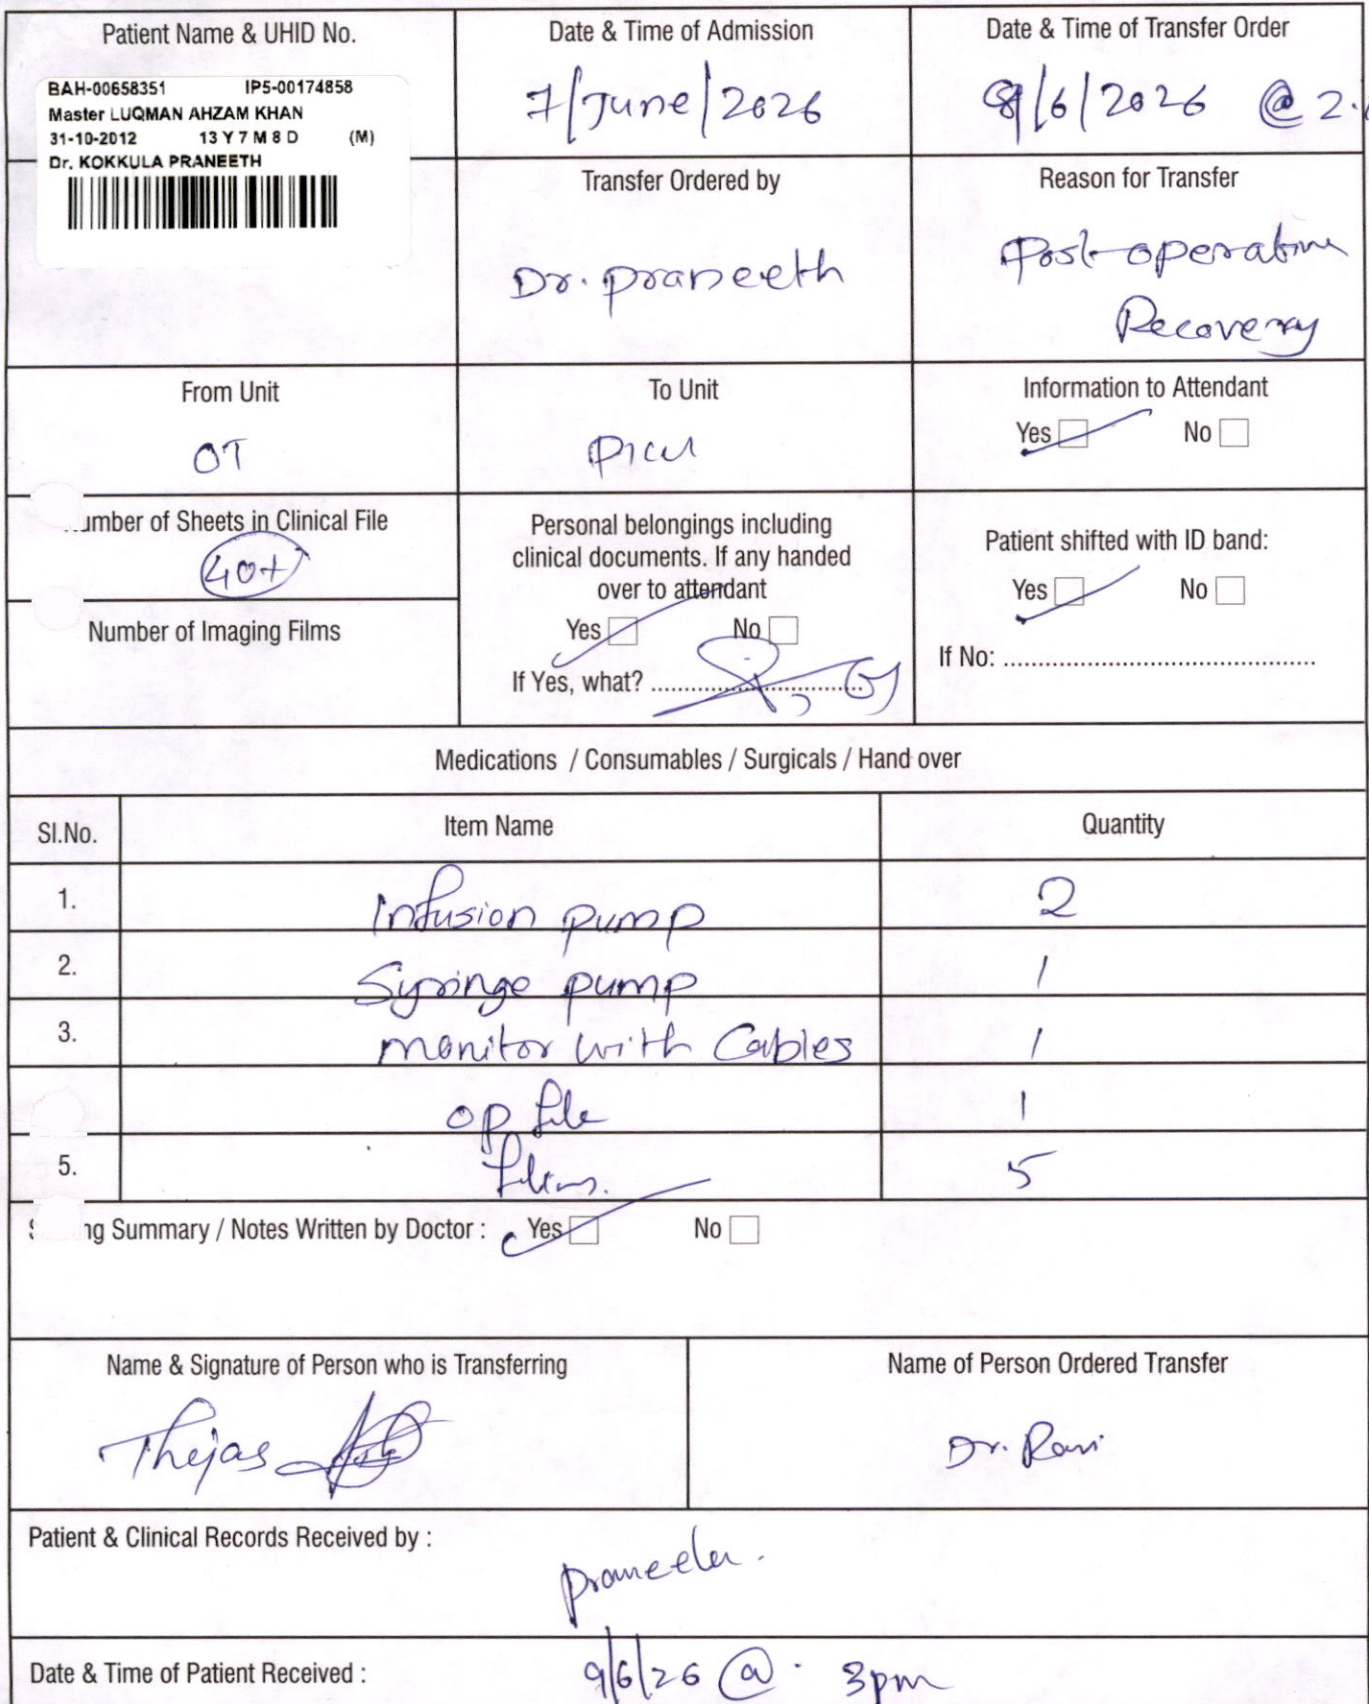 Patient Name & UHID No.
BAH-00658351 IP5-00174858
Master LUQMAN AHZAM KHAN
31-10-2012 13 Y 7 M 8 D (M)
Dr. KOKKULA PRANEETH
Date & Time of Admission
7/June/2026
Date & Time of Transfer Order
/6/2026 @ 2.
Transfer Ordered by
Dr. praneeth
Reason for Transfer
Post-operative
Recovery
From Unit
OT
To Unit
PICU
Information to Attendant
Yes No
umber of Sheets in Clinical File
40+
Number of Imaging Films
Personal belongings including
clinical documents. If any handed
over to attendant
Yes No
If Yes, what?
Patient shifted with ID band:
Yes No
If No:
Medications / Consumables / Surgicals / Hand over
Sl.No. Item Name Quantity
1. Infusion pump 2
2. Syringe pump 1
3. monitor with Cables 1
op file 1
5. films. 5
ng Summary / Notes Written by Doctor : Yes No
Name & Signature of Person who is Transferring
Thejas
Name of Person Ordered Transfer
Dr. Ravi
Patient & Clinical Records Received by :
Date & Time of Patient Received :
9/6/26 @ 3pm